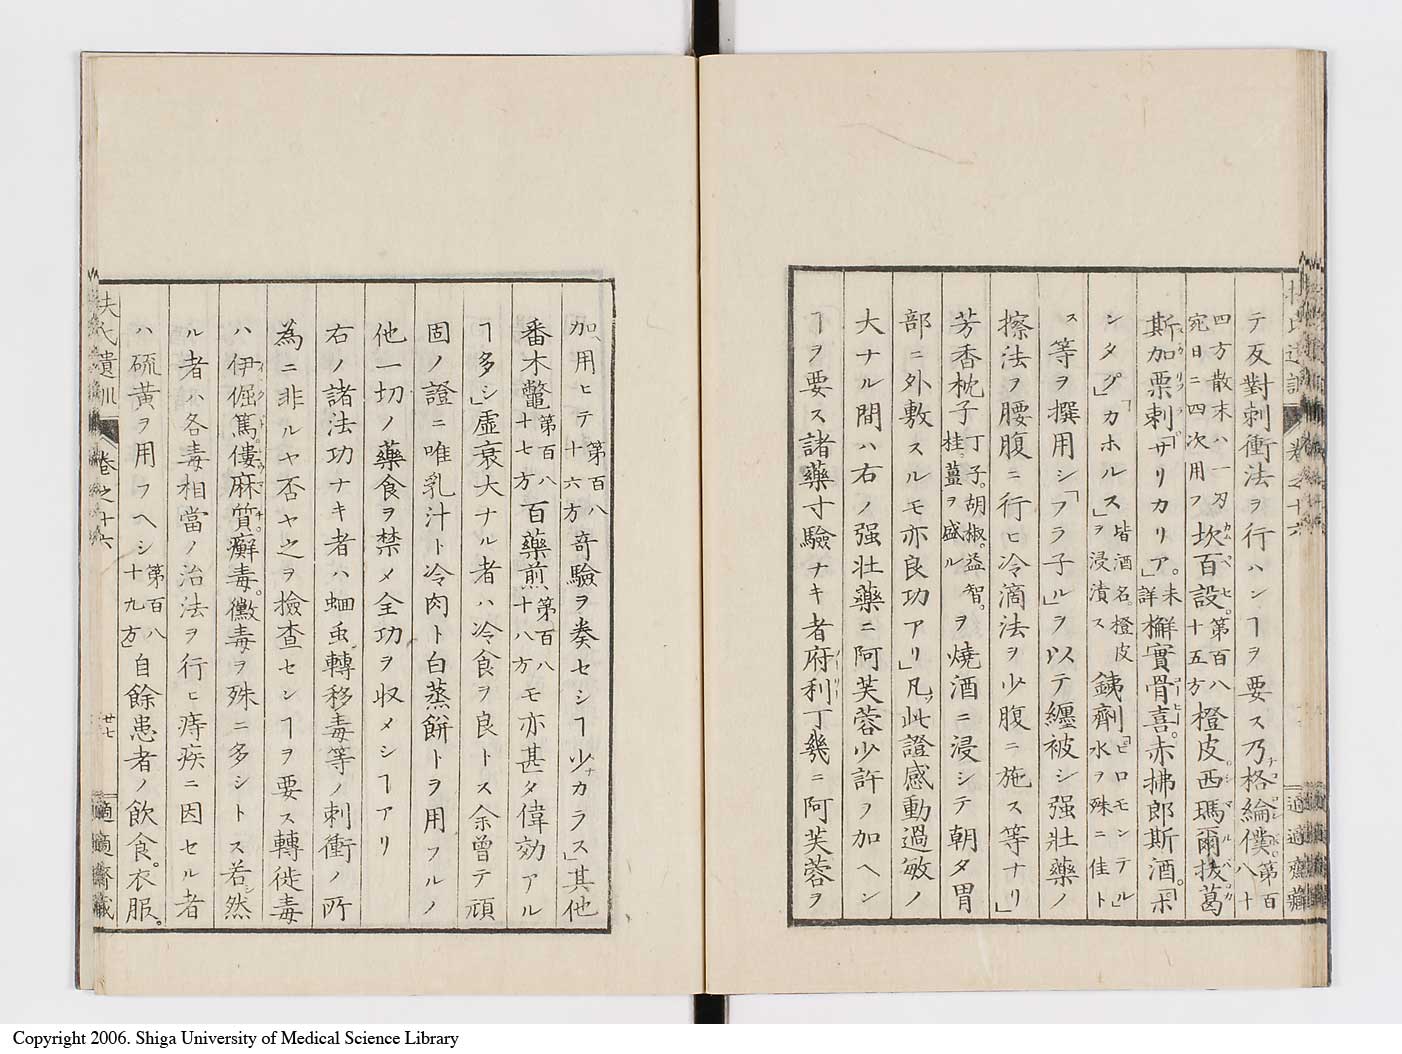 テ反對刺衝法ヲ行ハンヿヲ要ス乃格綸僕第百八十
四方散末ハ一刃宛日ニ四次用フ坎百設第百八十五方橙皮西瑪爾抜葛
斯加栗剌「サリカリア」未詳檞實骨喜。赤拂郎斯酒。「ホ
シタグ」「カホルス」皆酒名。橙皮ヲ浸漬ス銕劑「ピロモンテル」水ヲ殊ニ佳トス
等ヲ撰用シ「フラ子ル」ヲ以テ纏被シ强壮藥ノ
擦法ヲ腰腹ニ行ヒ冷滴法ヲ少腹ニ施ス等ナリ」
芳香枕子丁子。胡椒。益智。桂。薑ヲ盛ルヲ燒酒ニ浸シテ朝タ胃
部ニ外敷スルモ亦良功アリ」凡ソ此證感動過敏ノ
大ナル間ハ右ノ强壮藥ニ阿芙蓉少許ヲ加ヘンヿ
ヲ要ス諸藥寸驗ナキ者府利丁幾ニ阿芙蓉ヲ
加用ヒテ第百八十六方竒驗ヲ奏セシヿ少カラス」其他
番木鼈第百八十七方百藥煎第百八十八方モ亦甚タ偉効アル
ヿ多シ」虚衰大ナル者ハ冷食ヲ良トス余曾テ頑
固ノ證ニ唯乳汁ト冷肉ト白蒸餅トヲ用フルノ
他一切ノ藥食ヲ禁メ全功ヲ収メシヿアリ
右ノ諸法功ナキ者ハ蛔虫轉移毒等ノ刺衝ノ所
為ニ非ルヤ否ヤ之ヲ撿査センヿヲ要ス轉徙毒
ハ伊倔篤僂麻質。癬毒。黴毒ヲ殊ニ多シトス若シ然
ル者ハ各毒相當ノ治法ヲ行ヒ痔疾ニ因セル者
ハ硫黄ヲ用フヘシ第百八十九方自餘患者ノ飲食。衣服。
扶氏遺訓 巻之十六 廿七 適適齋藏